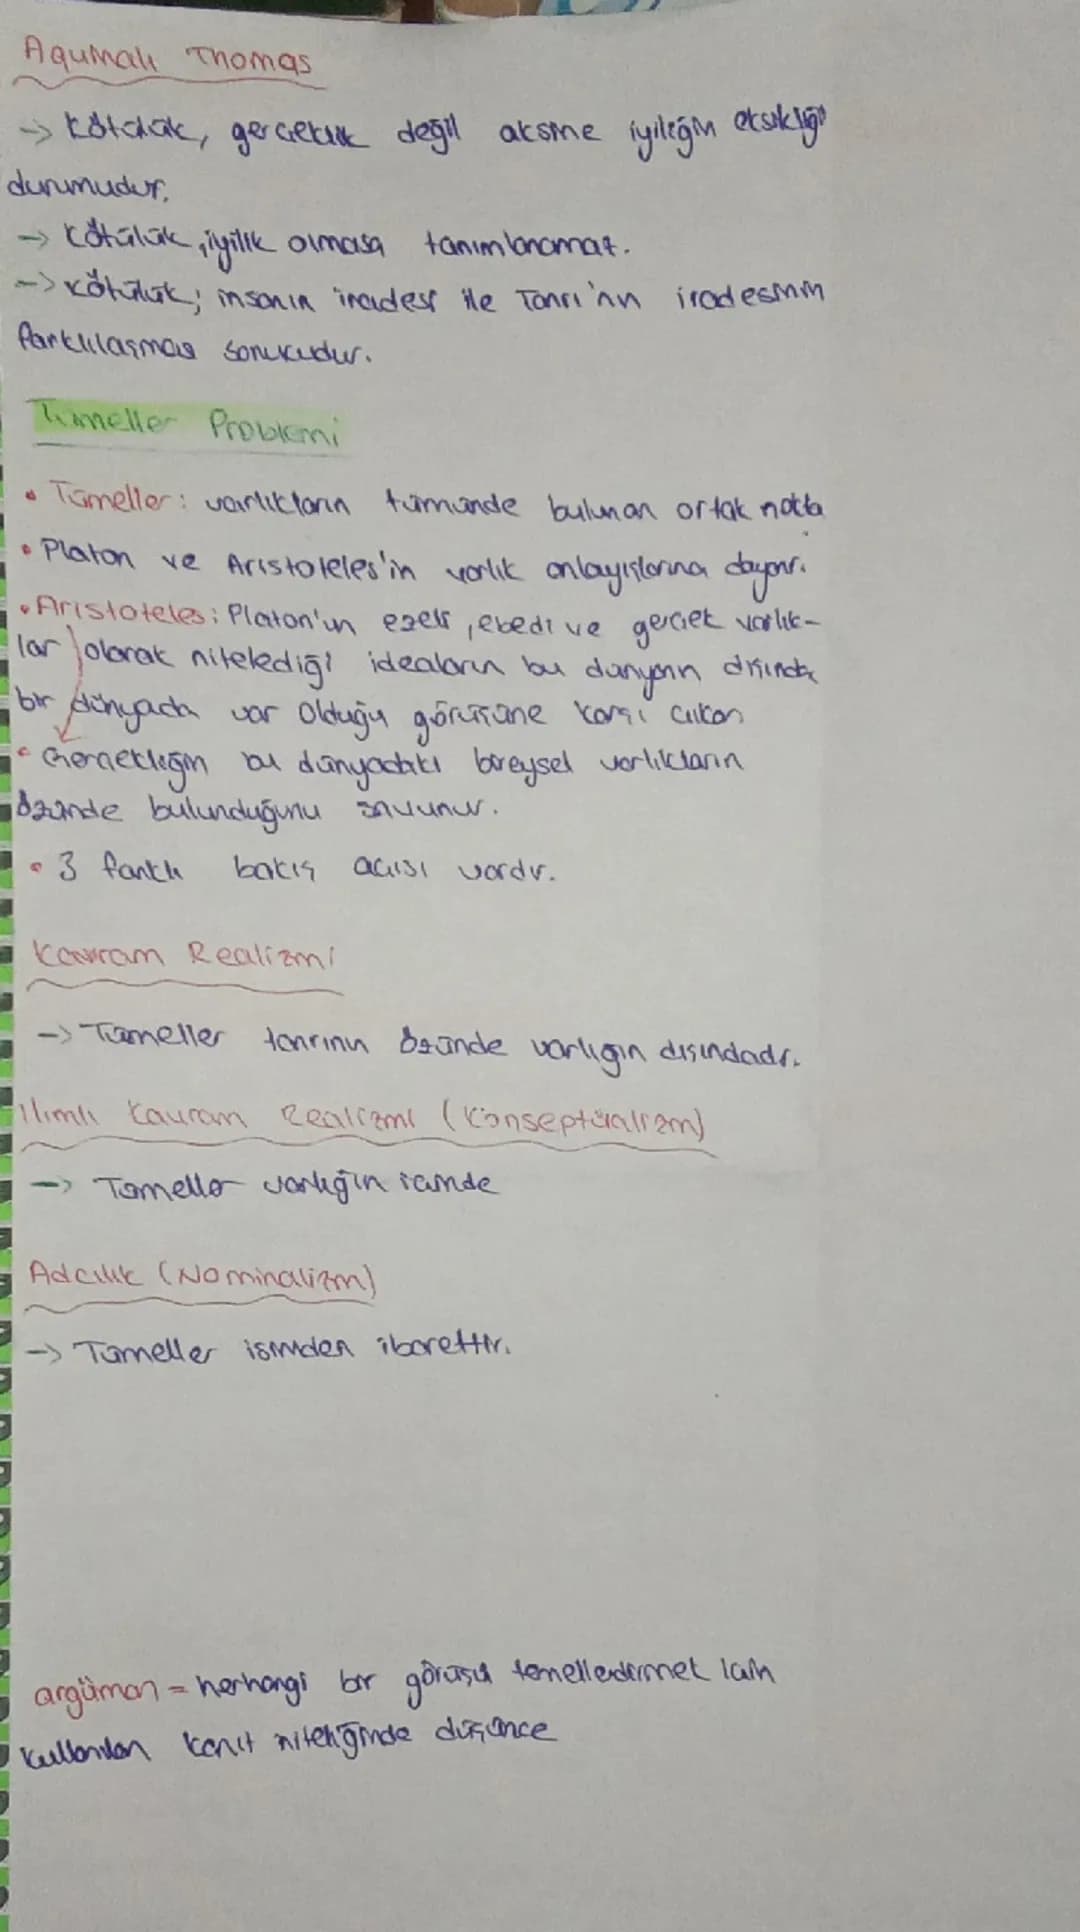 Aqumalı Thomas
-> Kötülük, gerçeklik değil aksine iyiliğin eksikliği
durumudur.
-> Kötülük, iyilik olmasa tanımlanamaz.
-> Kötülük; insanın iradesi ile Tanrı'nın iradesinin
farklılaşması sonucudur.
Tümeller Problemi
• Tümeller: varlıkların tümünde bulunan ortak nokta
• Platon ve Aristoteles'in varlık anlayışlarına dayanır.
• Aristoteles: Platon'un ezeli, ebedi ve gerçek varlık-
lar olarak nitelediği ideaların bu dünyanın dışında
bir dünyada var olduğu görüşüne karşı çıkan
• Gerçekliğin bu dünyadaki bireysel varlıkların
özünde bulunduğunu savunur.
• 3 farklı bakış açısı vardır.
Kavram Realizmi
-> Tümeller tanrının özünde varlığın dışındadır.
Ilımlı Kavram Realizmi (Konseptüalizm)
-> Tümeller varlığın içinde
Adcılık (Nominalizm)
-> Tümeller isimden ibarettir.
argüman = herhangi bir görüşü temellendirmek için
kullanılan kanıt niteliğinde düşünce